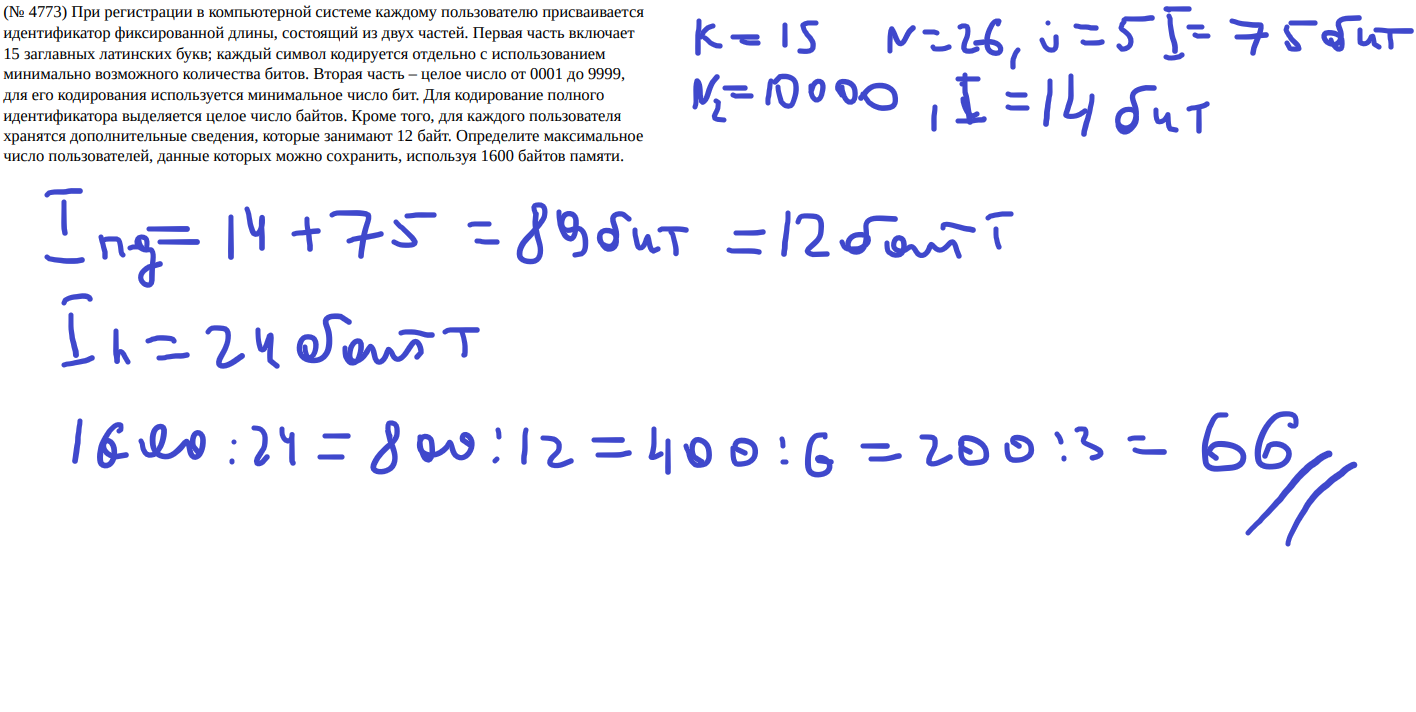 (№ 4773) При регистрации в компьютерной системе каждому пользователю присваивается
идентификатор фиксированной длины, состоящий из двух частей. Первая часть включает
15 заглавных латинских букв; каждый символ кодируется отдельно с использованием
минимально возможного количества битов. Вторая часть – целое число от 0001 до 9999,
для его кодирования используется минимальное число бит. Для кодирование полного
идентификатора выделяется целое число байтов. Кроме того, для каждого пользователя
хранятся дополнительные сведения, которые занимают 12 байт. Определите максимальное
число пользователей, данные которых можно сохранить, используя 1600 байтов памяти.
K = 15 N = 26, i = 5 I = 75 бит
N2 = 10000, I = 14 бит
I пд = 14 + 75 = 89 бит = 12 байт
I п = 24 байт
1600 : 24 = 800 : 12 = 400 : 6 = 200 : 3 = 66